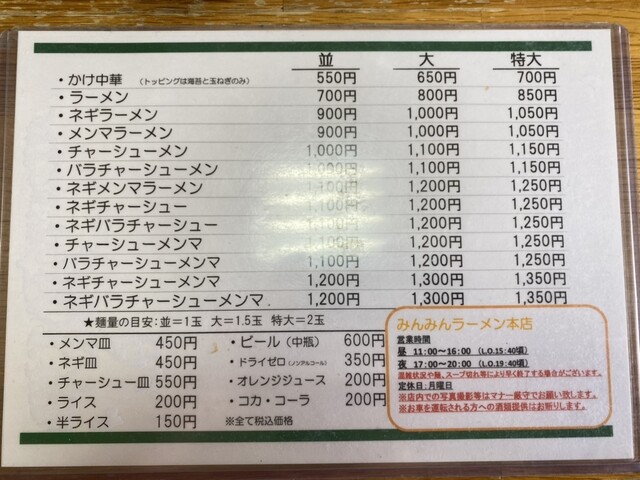 並 大 特大
・かけ中華 （トッピングは海苔と玉ねぎのみ） 550円 650円 700円
・ラーメン 700円 800円 850円
・ネギラーメン 900円 1,000円 1,050円
・メンマラーメン 900円 1,000円 1,050円
・チャーシューメン 1,000円 1,100円 1,150円
・バラチャーシューメン 1,000円 1,100円 1,150円
・ネギメンマラーメン 1,100円 1,200円 1,250円
・ネギチャーシュー 1,100円 1,200円 1,250円
・ネギバラチャーシュー 1,100円 1,200円 1,250円
・チャーシューメンマ 1,100円 1,200円 1,250円
・バラチャーシューメンマ 1,100円 1,200円 1,250円
・ネギチャーシューメンマ 1,200円 1,300円 1,350円
・ネギバラチャーシューメンマ 1,200円 1,300円 1,350円
★麺量の目安：並＝1玉 大＝1.5玉 特大＝2玉
・メンマ皿 450円
・ネギ皿 450円
・チャーシュー皿 550円
・ライス 200円
・半ライス 150円
・ビール（中瓶） 600円
・ドライゼロ（ノンアルコール） 350円
・オレンジジュース 200円
・コカ・コーラ 200円
※全て税込価格
みんみんラーメン本店
営業時間
昼 11：00～16：00 （L.O.15：40頃）
夜 17：00～20：00 （L.O.19：40頃）
混雑状況や麺、スープ切れ等により早く終了する場合がございます。
定休日：月曜日
※店内での写真撮影等はマナー厳守でお願い致します。
※お車を運転される方への酒類提供はお断りします。